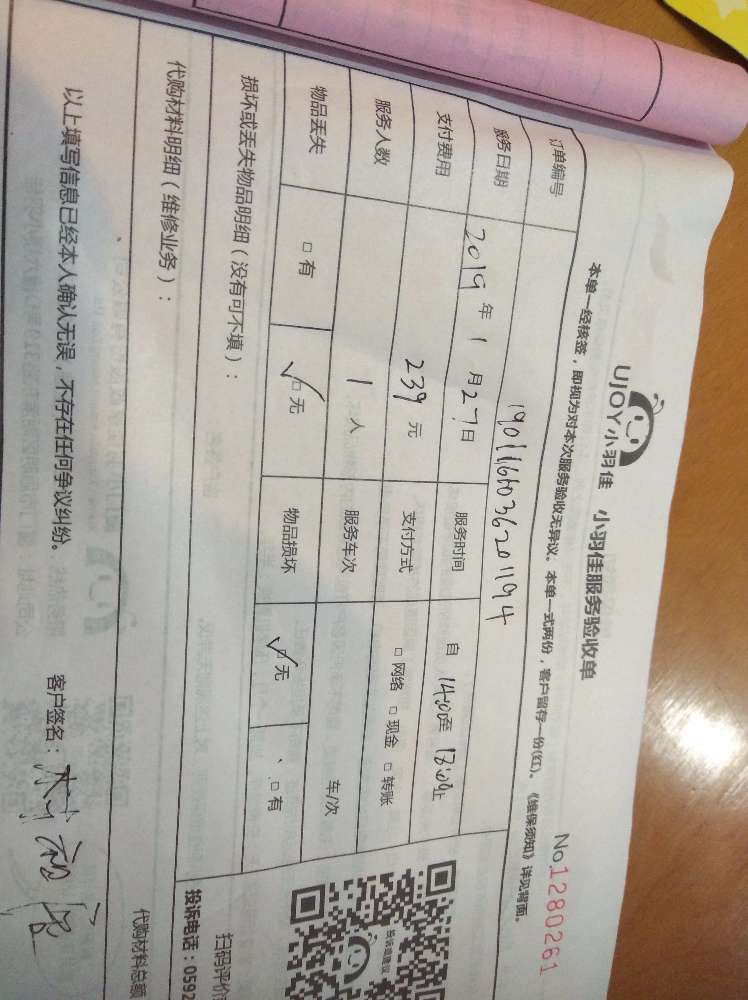 UJOY小羽佳 小羽佳服务验收单
No.1280261
本单一经核签,即视为对本次服务验收无异议。本单一式两份,客户留存一份(红)。《维保须知》详见背面。
订单编号
服务日期 2019年1月27日 服务时间 自14:00至18:00止
支付费用 239元 支付方式 □网络 □现金 □转账
服务人数 1人 服务车次 车/次
物品丢失 □有 ✓□无 物品损坏 ✓□无 、□有
损坏或丢失物品明细(没有可不填):
扫码评价
投诉电话:0592
代购材料明细(维修业务):
代购材料总额
以上填写信息已经本人确认无误,不存在任何争议纠纷。 客户签名: